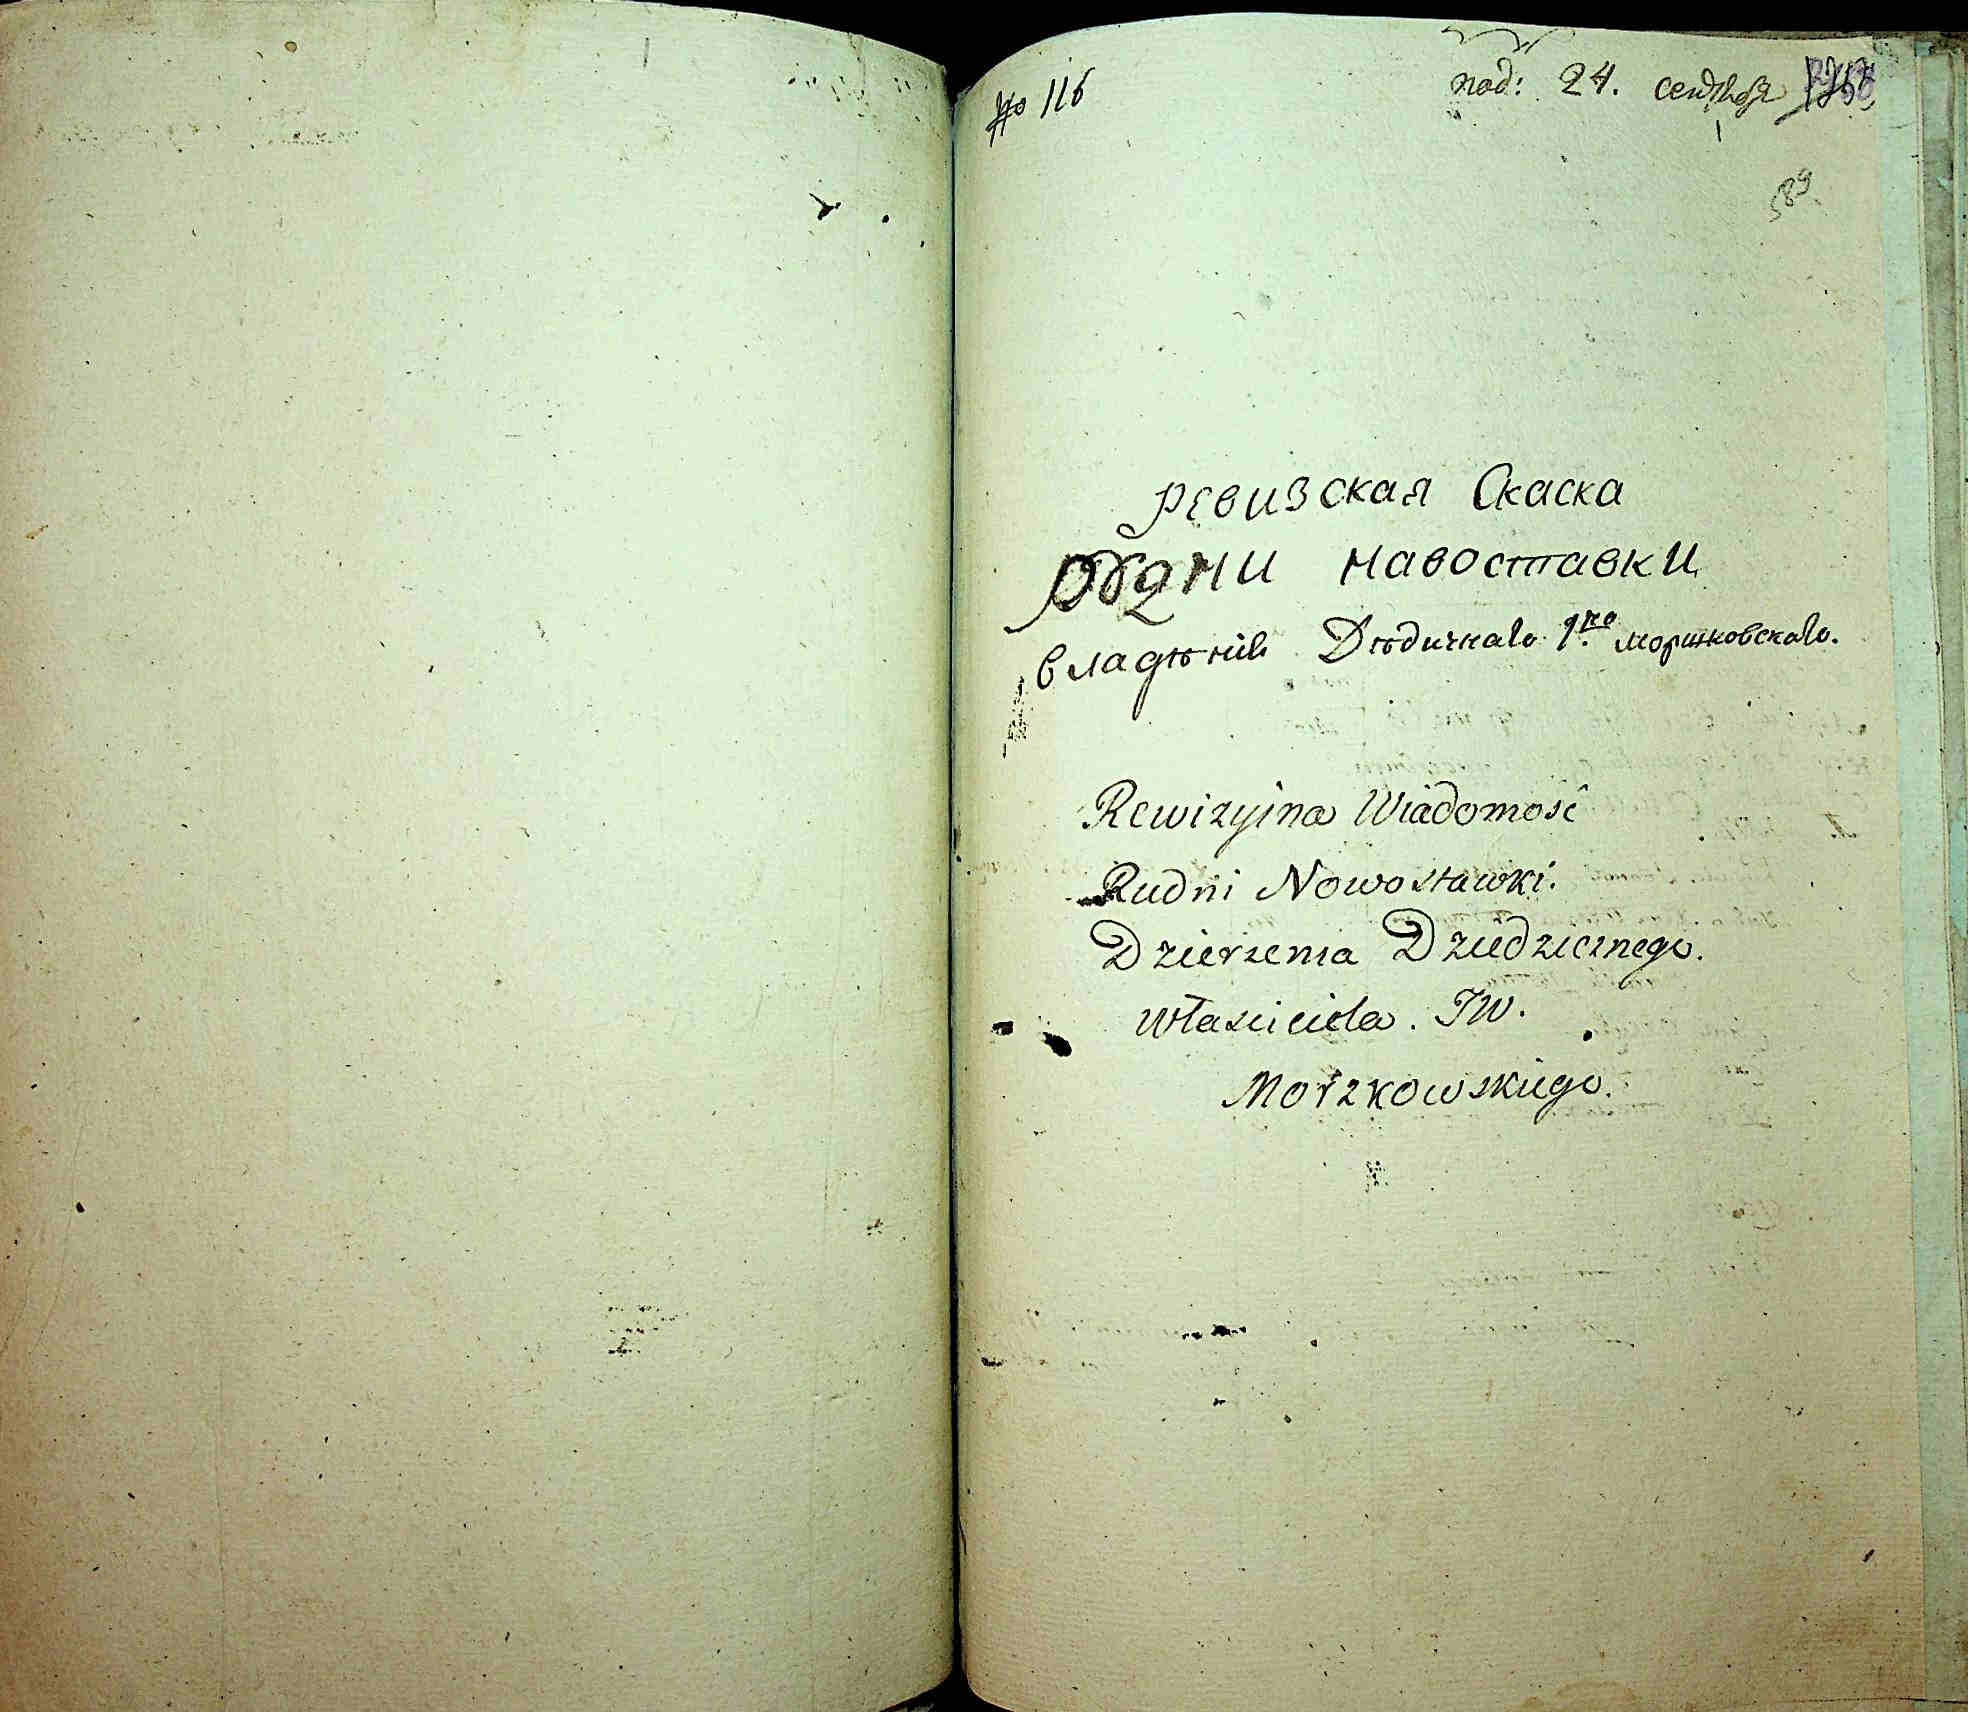 № 116
под: 24. сентября
589
Ревизская Скаска
Рудни навоставки
владения Дедичнаго Моржковскаго.
Rewizyina Wiadomość
Rudni Nowostawki.
Dzierzenia Dziedzicznego.
własciciela. JW.
Morzkowskiego.